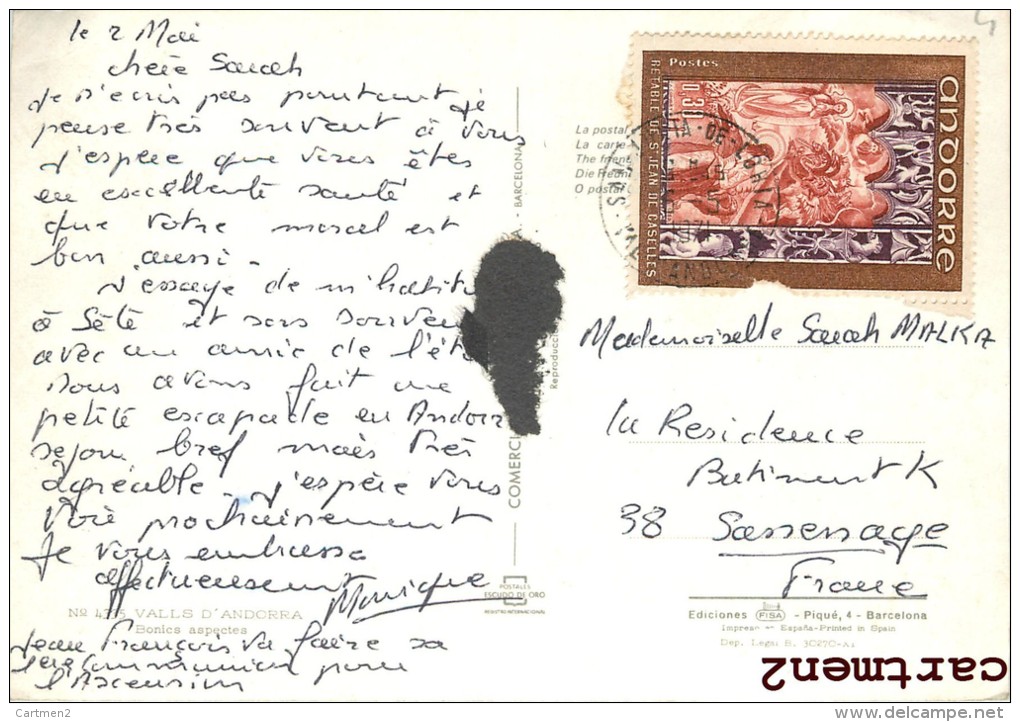 le 2 Mai
chère Sarah
Je n'ecris pas pourtant je
pense très souvent à vous
J'espère que vous êtes
en excellente santé et
que votre moral est
bon aussi.
J'essaye de m'habitu
à Sète et
avec un amie de l'été
nous avons fait une
petite escapade en Andorr
sejour bref mais très
agréable. J'espère vous
voir prochainement
Je vous embrasse
affectueusement
Monique
Jean François va faire sa
1ere Communion pour
l'Ascension
Nº 4335 VALLS D'ANDORRA
Bonics aspectes
La postal
La carte
The frien
Die Freun
O postal
BARCELONA
COMERCI
Reproducci
POSTALES
ESCUDO DE ORO
REGISTRO INTERNACIONAL
Postes
0,30
ANDORRE
RETABLE DE ST JEAN DE CASELLES
Mademoiselle Sarah MALKA
la Residence
Batiment K
38 Sassenage
France
Ediciones FISA - Piqué, 4 - Barcelona
Impreso en España-Printed in Spain
Dep. Legal B. 30270-XI
cartmen2
Cartmen2